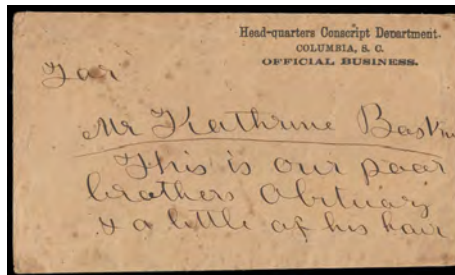 Head-quarters Conscript Department.
COLUMBIA, S. C.
OFFICIAL BUSINESS.
For
Mr Kathrine
This is our poor
brothers Obituary
& a little of his hair